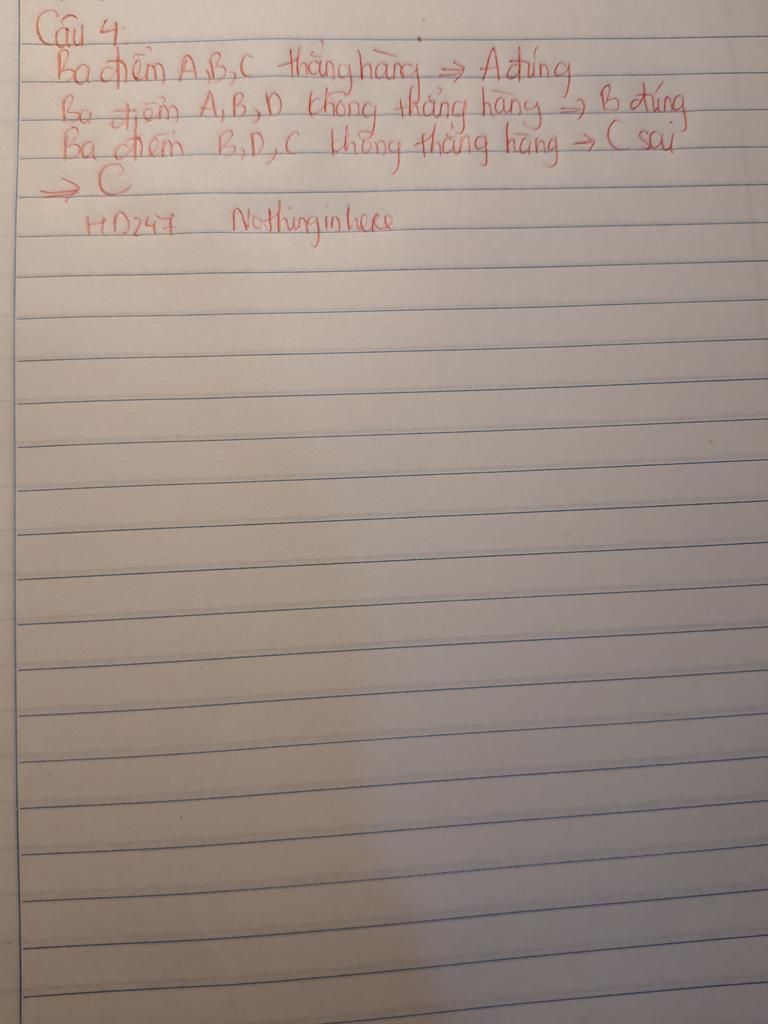 Câu 4:
Ba điểm A,B,C thẳng hàng => A đúng
Ba điểm A,B,D không thẳng hàng => B đúng
Ba điểm B,D,C không thẳng hàng → C sai
→ C
HD247 Nothinginhere